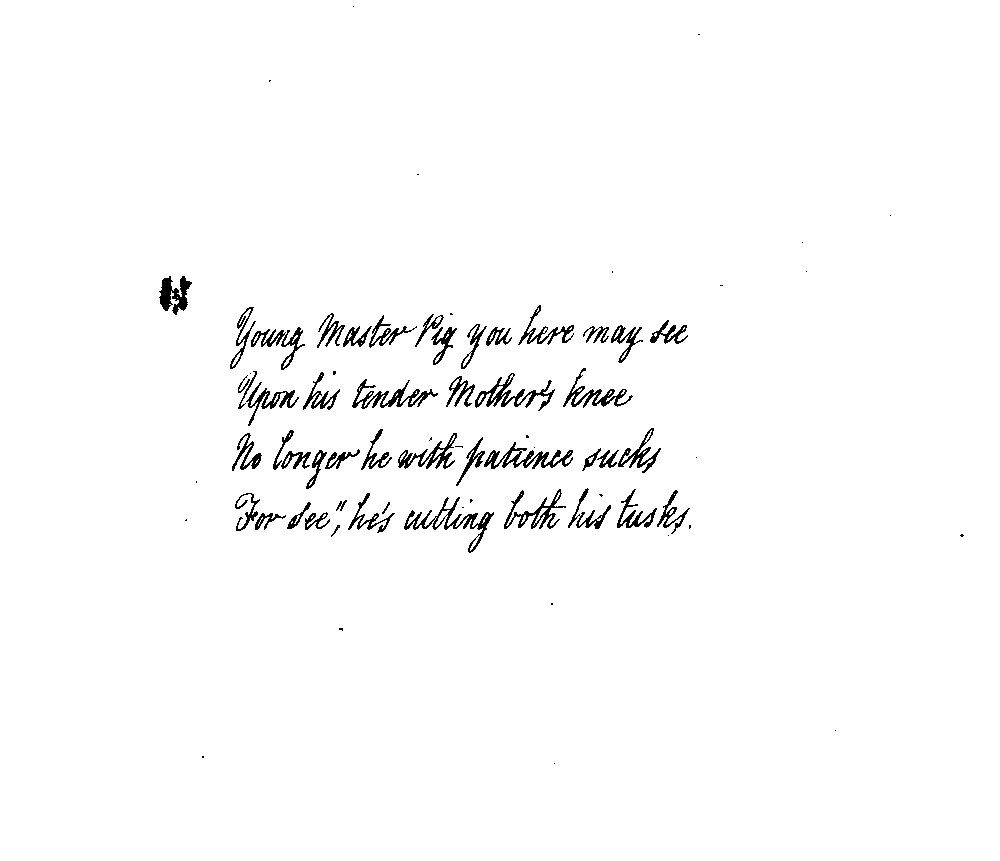 Young Master Pig you here may see
Upon his tender Mother's knee
No longer he with patience sucks
For see", he's cutting both his tusks.